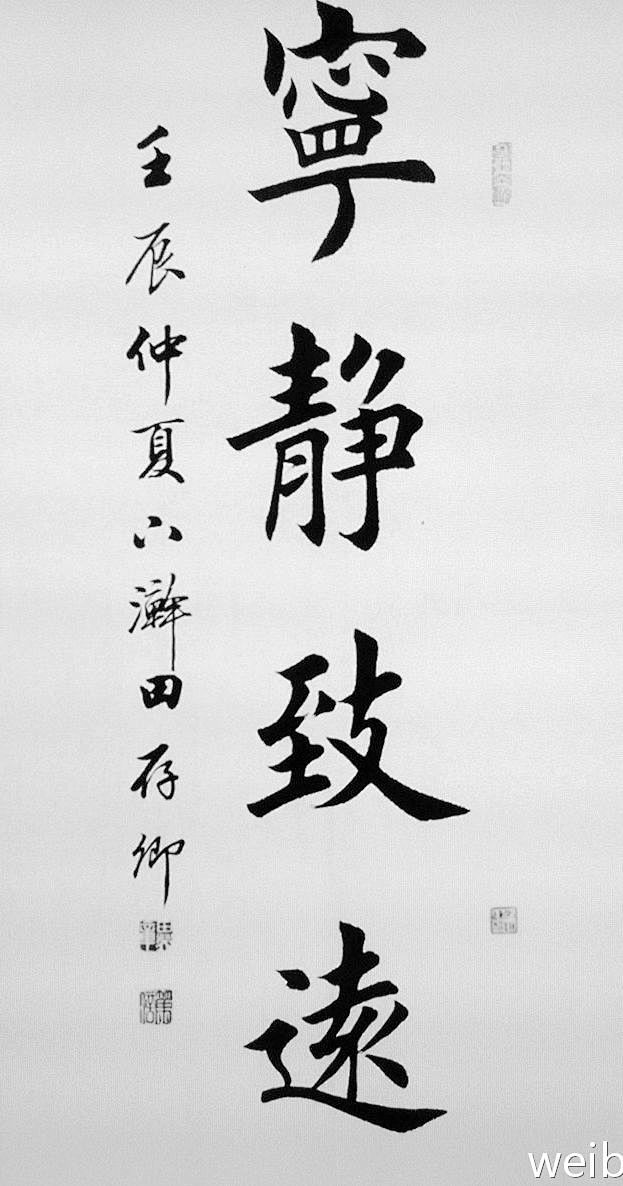 寧静致遠
壬辰仲夏 田存卿
weib